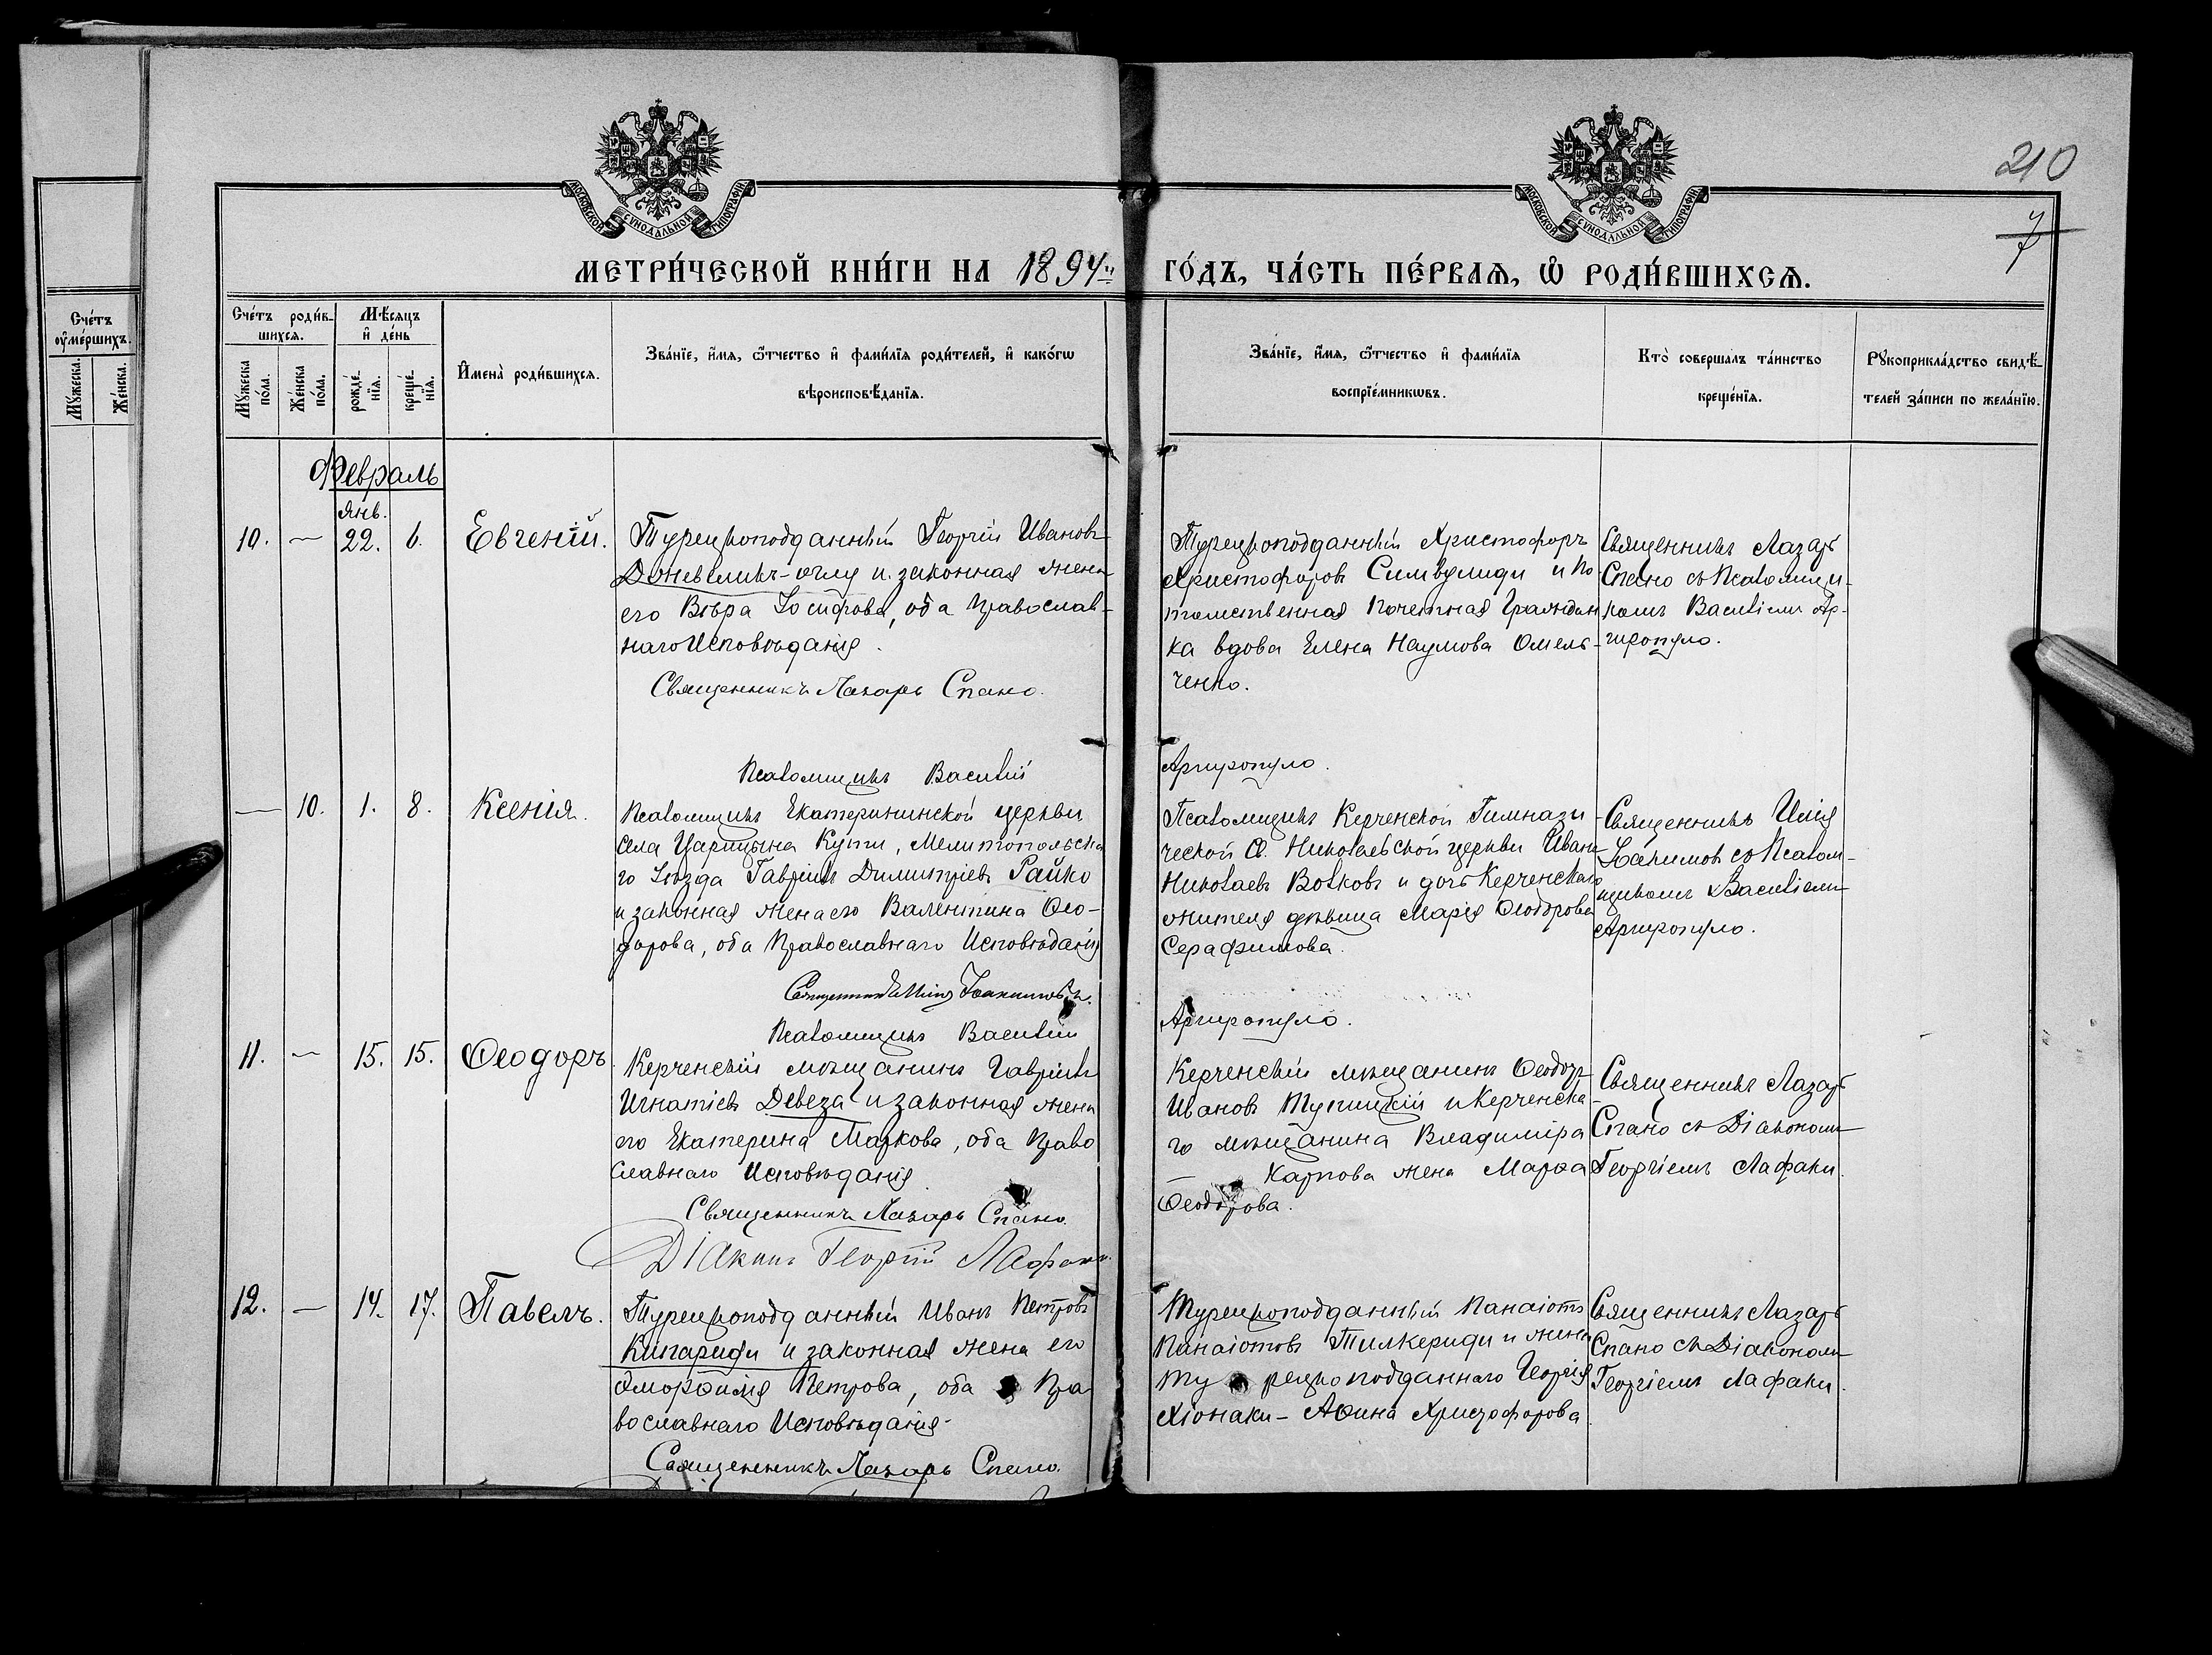 МОСКОВСКОЙ СУНОДАЛЬНОЙ ТИПОГРАФІИ
МОСКОВСКОЙ СУНОДАЛЬНОЙ ТИПОГРАФІИ
210
7
МЕТРИ́ЧЕСКОЙ КНИ́ГИ НА 1894й ГО́ДЪ, ЧА́СТЬ ПЕ́РВАѦ, Ѡ РОДИ́ВШИХСѦ.
Сче́тъ ᲂу҆ме́ршихъ.
Мꙋ́жеска.
Же́нска.
Сче́тъ роди́вшихсѧ.
Мꙋ́жеска по́ла.
Же́нска по́ла.
Мѣ́сѧцъ и҆ де́нь
рожде́нїѧ.
креще́нїѧ.
И҆мена̀ роди́вшихсѧ.
Зва́нїе, и҆́мѧ, ѻ҆́тчество и҆ фами́лїѧ роди́телей, и҆ како́гѡ
вѣроисповѣ́данїѧ.
Зва́нїе, и҆́мѧ, ѻ҆́тчество и҆ фами́лїѧ
воспрїе́мникѡвъ.
Кто̀ соверша́лъ та́инство
креще́нїѧ.
Рꙋкоприкла́дство свидѣ́-
телей за́писи по жела́нїю.
Февраль
Янв.
10. — 22. 6. Евгеній.
Турецкоподданный Георгій Ивановъ
Доневликъ-оглу и законная жена
его Вѣра Іосифова, оба Православ-
наго Исповѣданія.
Священникъ Лазарь Спано.
Псаломщикъ Василій Аргиропуло.
Турецкоподданный Христофоръ
Христофоровъ Симвулиди и По-
томственная Почетная Граждан
ка вдова Елена Наумова Омель-
ченко.
Священникъ Лазарь
Спано съ Псаломщи-
комъ Василіемъ Ар-
гиропуло.
— 10. 1. 8. Ксенія.
Псаломщикъ Екатерининской церкви
села Царицына Кути, Мелитопольска
го Уѣзда Гавріилъ Димитріевъ Райко
и законная жена его Валентина Ѳео-
дорова, оба Православнаго Исповѣданія
Священникъ Илія Іоакимовъ.
Псаломщикъ Василій Аргиропуло.
Псаломщикъ Керченской Гимнази
ческой Св. Николаевской церкви Иванъ
Николаевъ Волковъ и дочь Керченскаго
жителя дѣвица Марія Ѳеодорова
Серафимова.
Священникъ Илія
Іоакимовъ съ Псалом-
щикомъ Василіемъ
Аргиропуло.
11. — 15. 15. Ѳеодоръ.
Керченскій мѣщанинъ Гавріилъ
Игнатіевъ Девеза и законная жена
его Екатерина Маркова, оба Право
славнаго Исповѣданія
Священникъ Лазарь Спано.
Діаконъ Георгій Лафаки.
Керченскій мѣщанинъ Ѳеодоръ
Ивановъ Тупицкій и Керченска-
го мѣщанина Владиміра
Карпова жена Марѳа
Ѳеодорова.
Священникъ Лазарь
Спано съ Діакономъ
Георгіемъ Лафаки.
12. — 14. 17. Павелъ.
Турецкоподданный Иванъ Петровъ
Кипариди и законная жена его
Эморфилія Петрова, оба Пра
вославнаго Исповѣданія.
Священникъ Лазарь Спано.
Турецкоподданный Панаіотъ
Панаіотовъ Тилкериди и жена
Турецкоподданнаго Георгія
Хіонаки - Аѳина Христофорова
Священникъ Лазарь
Спано съ Діакономъ
Георгіемъ Лафаки.